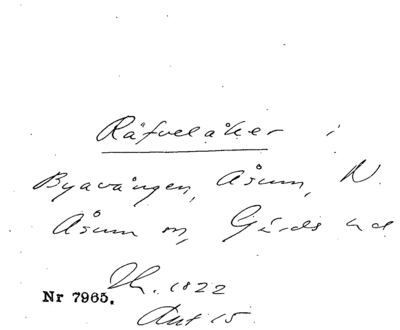 Räfvelåker i
Byavången, Åsum, N.
Åsum sn, Gärds hd
Sk. 1822
Nr 7965.
Akt 15.